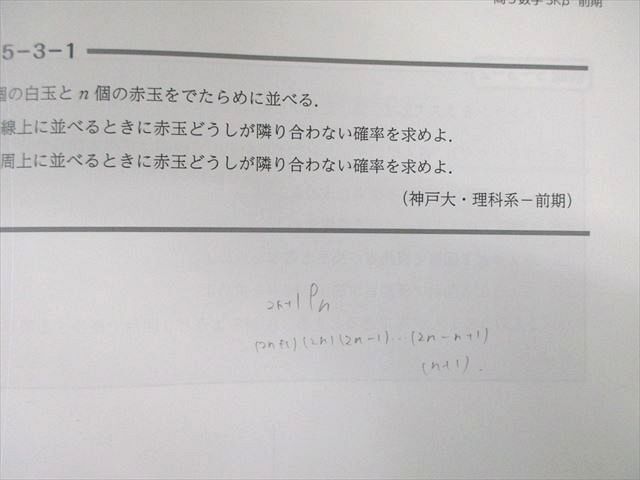 高3数学SKβ 前期
5-3-1
個の白玉と n 個の赤玉をでたらめに並べる.
線上に並べるときに赤玉どうしが隣り合わない確率を求めよ.
周上に並べるときに赤玉どうしが隣り合わない確率を求めよ.
(神戸大・理科系-前期)
2n+1Pn
(2n+1)(2n)(2n-1)...(2n-n+1)
(n+1).